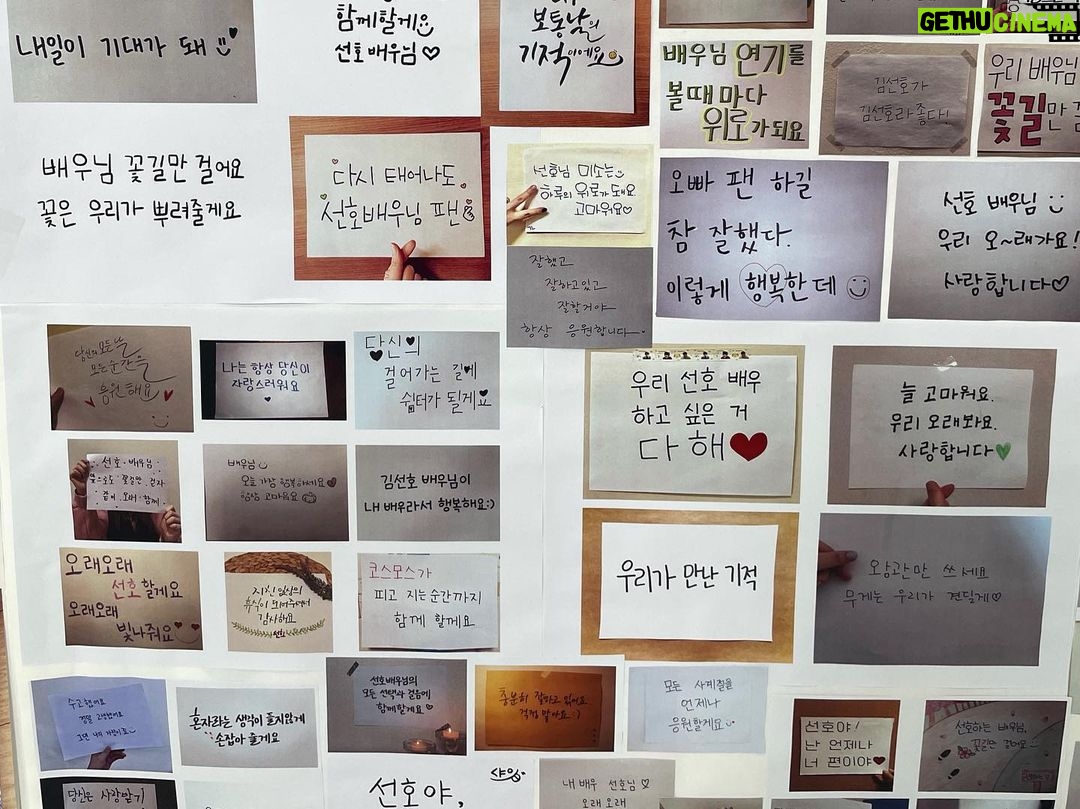 내일이 기대가 돼
함께할게요
선호 배우님♡
보통날의
기적이에요
배우님 연기를
볼때마다
위로가되요
김선호가
김선호라 좋다!
우리 배우님
꽃길만
GETHUCINEMA
배우님 꽃길만 걸어요
꽃은 우리가 뿌려줄게요
다시 태어나도
선호배우님 팬
선호님 미소는
하루의 위로가 돼요
고마워요♡
오빠 팬 하길
참 잘했다.
이렇게 행복한데
선호 배우님
우리 오~래가요!
사랑합니다♡
잘했고
잘하고있고
잘할거야
항상 응원합니다
당신의 모든 날
모든 순간을
응원해요
나는 항상 당신이
자랑스러워요
당신의
걸어가는 길에
쉼터가 될게요
우리 선호 배우
하고 싶은 거
다 해♥
늘 고마워요.
우리 오래봐요.
사랑합니다
선호 배우님
함께
배우님
오늘 가장 행복하세요
항상 고마워요
김선호 배우님이
내 배우라서 행복해요:)
오래오래
선호할게요
오래오래
빛나줘요
지친 일상의
휴식이 되어주셔서
감사해요
코스모스가
피고 지는순간까지
함께 할게요
우리가 만난 기적
왕관만 쓰세요
무게는 우리가 견딜게♡
수고했어요
혼자라는 생각이 들지않게
손잡아 줄게요
선호배우님의
모든 선택과 걸음에
함께할게요♡
충분히 잘하고 있어요
걱정 말아요 :)
모든 사계절을
언제나
응원할게요
선호야!
난 언제나
너 편이야♥
선호하는 배우님,
꽃길만 걸어요
당신은 사랑받기
선호야,
내 배우 선호님♡
오래 오래